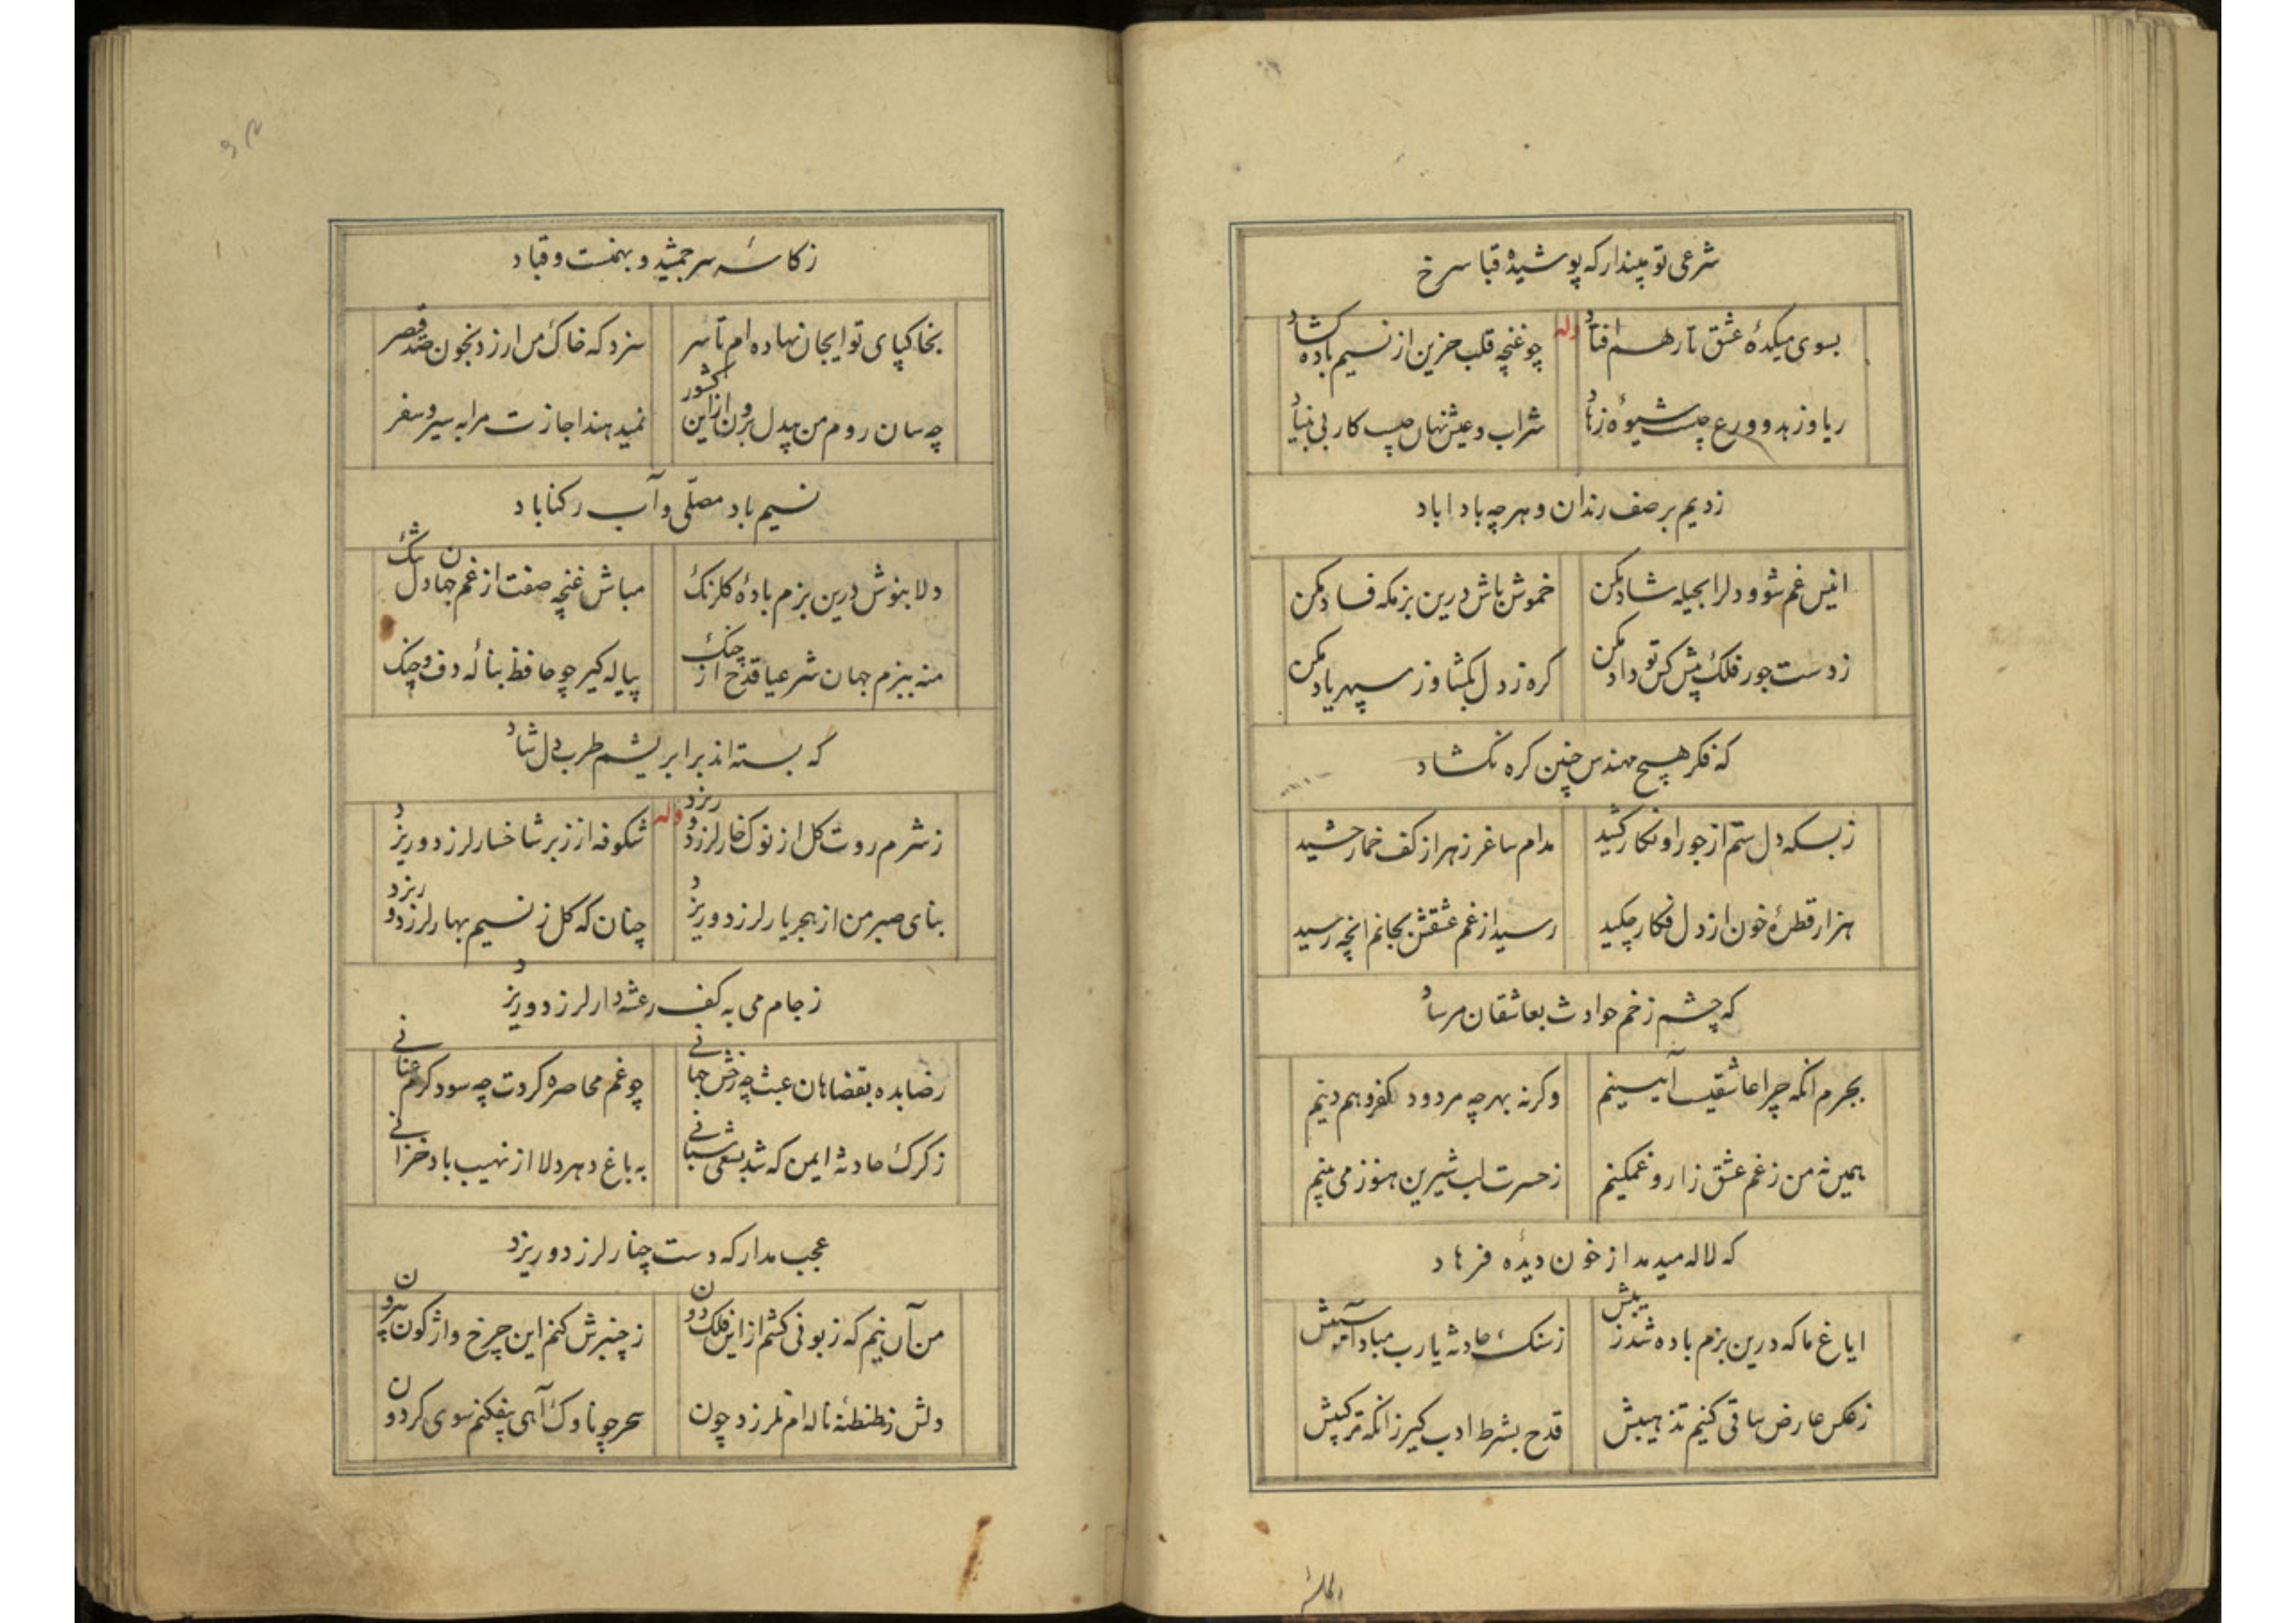 شرعی تو مپندار که پوشیدهٔ قبا سرخ
وله
بسوی میکدهٔ عشق تا رهم افتاد
چو غنچه قلب حزین از نسیم باده کشاد
ریا و زهد و ورع چیست شیوهٔ زهاد
شراب و عیش نهان چیست کار بی بنیاد
زدیم بر صف رندان و هر چه بادا باد
انیس غم شو و دلرا بحیله شاد مکن
خموش باش درین بزمکه فساد مکن
ز دست جور فلک پیش کس تو داد مکن
کره ز دل بکشا و ز سپهر یاد مکن
که فکر هیچ مهندس چنین کره نکشاد
ز بسکه دل ستم از جور او نکار کشید
مدام ساغر زهر از کف خمار چشید
هزار قطرهٔ خون از دل فکار چکید
رسید از غم عشقش بجانم انچه رسید
که چشم زخم حوادث بعاشقان مرساد
بجرم انکه چرا عاشقیست آیینم
وکرنه بهر چه مردود کفر و هم دینم
همین نه من ز غم عشق زار و غمکینم
ز حسرت لب شیرین هنوز می بینم
که لاله میدمد از خون دیدهٔ فرهاد
ایاغ ما که درین بزم باده شد زیبش
ز سنک حادثه یا رب مباد آسیبش
ز عکس عارض ساقی کنیم تذهیبش
قدح بشرط ادب کیر زانکه ترکیبش
ز کاسهٔ سر جمشید و بهمنست و قباد
بخاکپای تو ایجان نهاده ام تا سر
سزد که خاک من ارزد بخون صد قصر
چه سان روم من بیدل برون از این کشور
نمیدهند اجازت مرا به سیر و سفر
نسیم باد مصلّی و آب رکناباد
دلا بنوش درین بزم بادهٔ کلرنک
مباش غنچه صفت از غم جهان دل تنک
منه ببزم جهان شرعیا قدح از چنک
پیاله کیر چو حافظ بنالهٔ دف و چنک
که بسته اند بر ابریشم طرب دل شاد
وله
ز شرم روت کل از نوک خار لرزد و ریزد
شکوفه از زبر شاخسار لرزد و ریزد
بنای صبر من از هجر یار لرزد و ریزد
چنان که کل ز نسیم بهار لرزد و ریزد
ز جام می به کف رعشه دار لرزد و ریزد
رضا بده بقضا هان عبث چه رخش جهانی
چو غم محاصره کردت چه سود کرم عنانی
ز کرک حادثه ایمن که شد بسعی شبانی
به باغ دهر دلا از نهیب باد خزانی
عجب مدار که دست چنار لرزد و ریزد
من آن نیم که زبونی کشم از این فلک دون
ز چنبرش کنم این چرخ واژکون بیرون
دلش ز طنطنهٔ ناله ام نلرزد چون
سحر چو ناوک آهی بفکنم سوی کردون